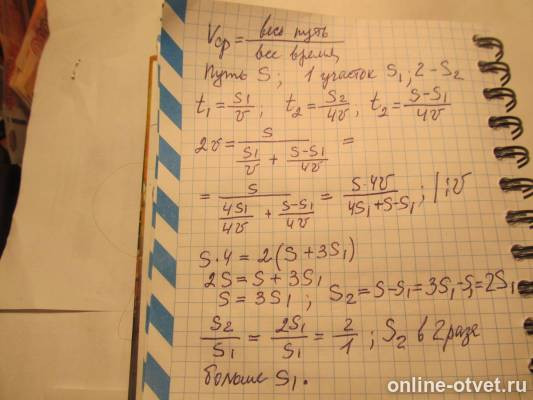 Vср = весь путь / все время
Путь S; 1 участок S₁; 2 - S₂
t₁ = S₁/v; t₂ = S₂/4v, t₂ = S-S₁/4v
2v = S / (S₁/v + S-S₁/4v) =
= S / (4S₁/4v + S-S₁/4v) = S·4v / 4S₁+S-S₁; |:v
S·4 = 2(S + 3S₁)
2S = S + 3S₁
S = 3S₁; S₂ = S-S₁ = 3S₁-S₁ = 2S₁
S₂/S₁ = 2S₁/S₁ = 2/1; S₂ в 2 раза
больше S₁.
online-otvet.ru